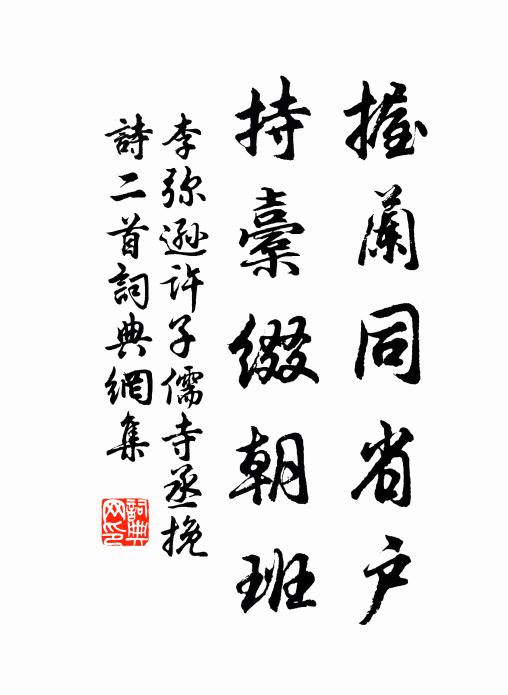 握蘭同省户
持橐綴朝班
李弥遜許子儒寺丞挽
詩二首詞典網集
詞典
网印